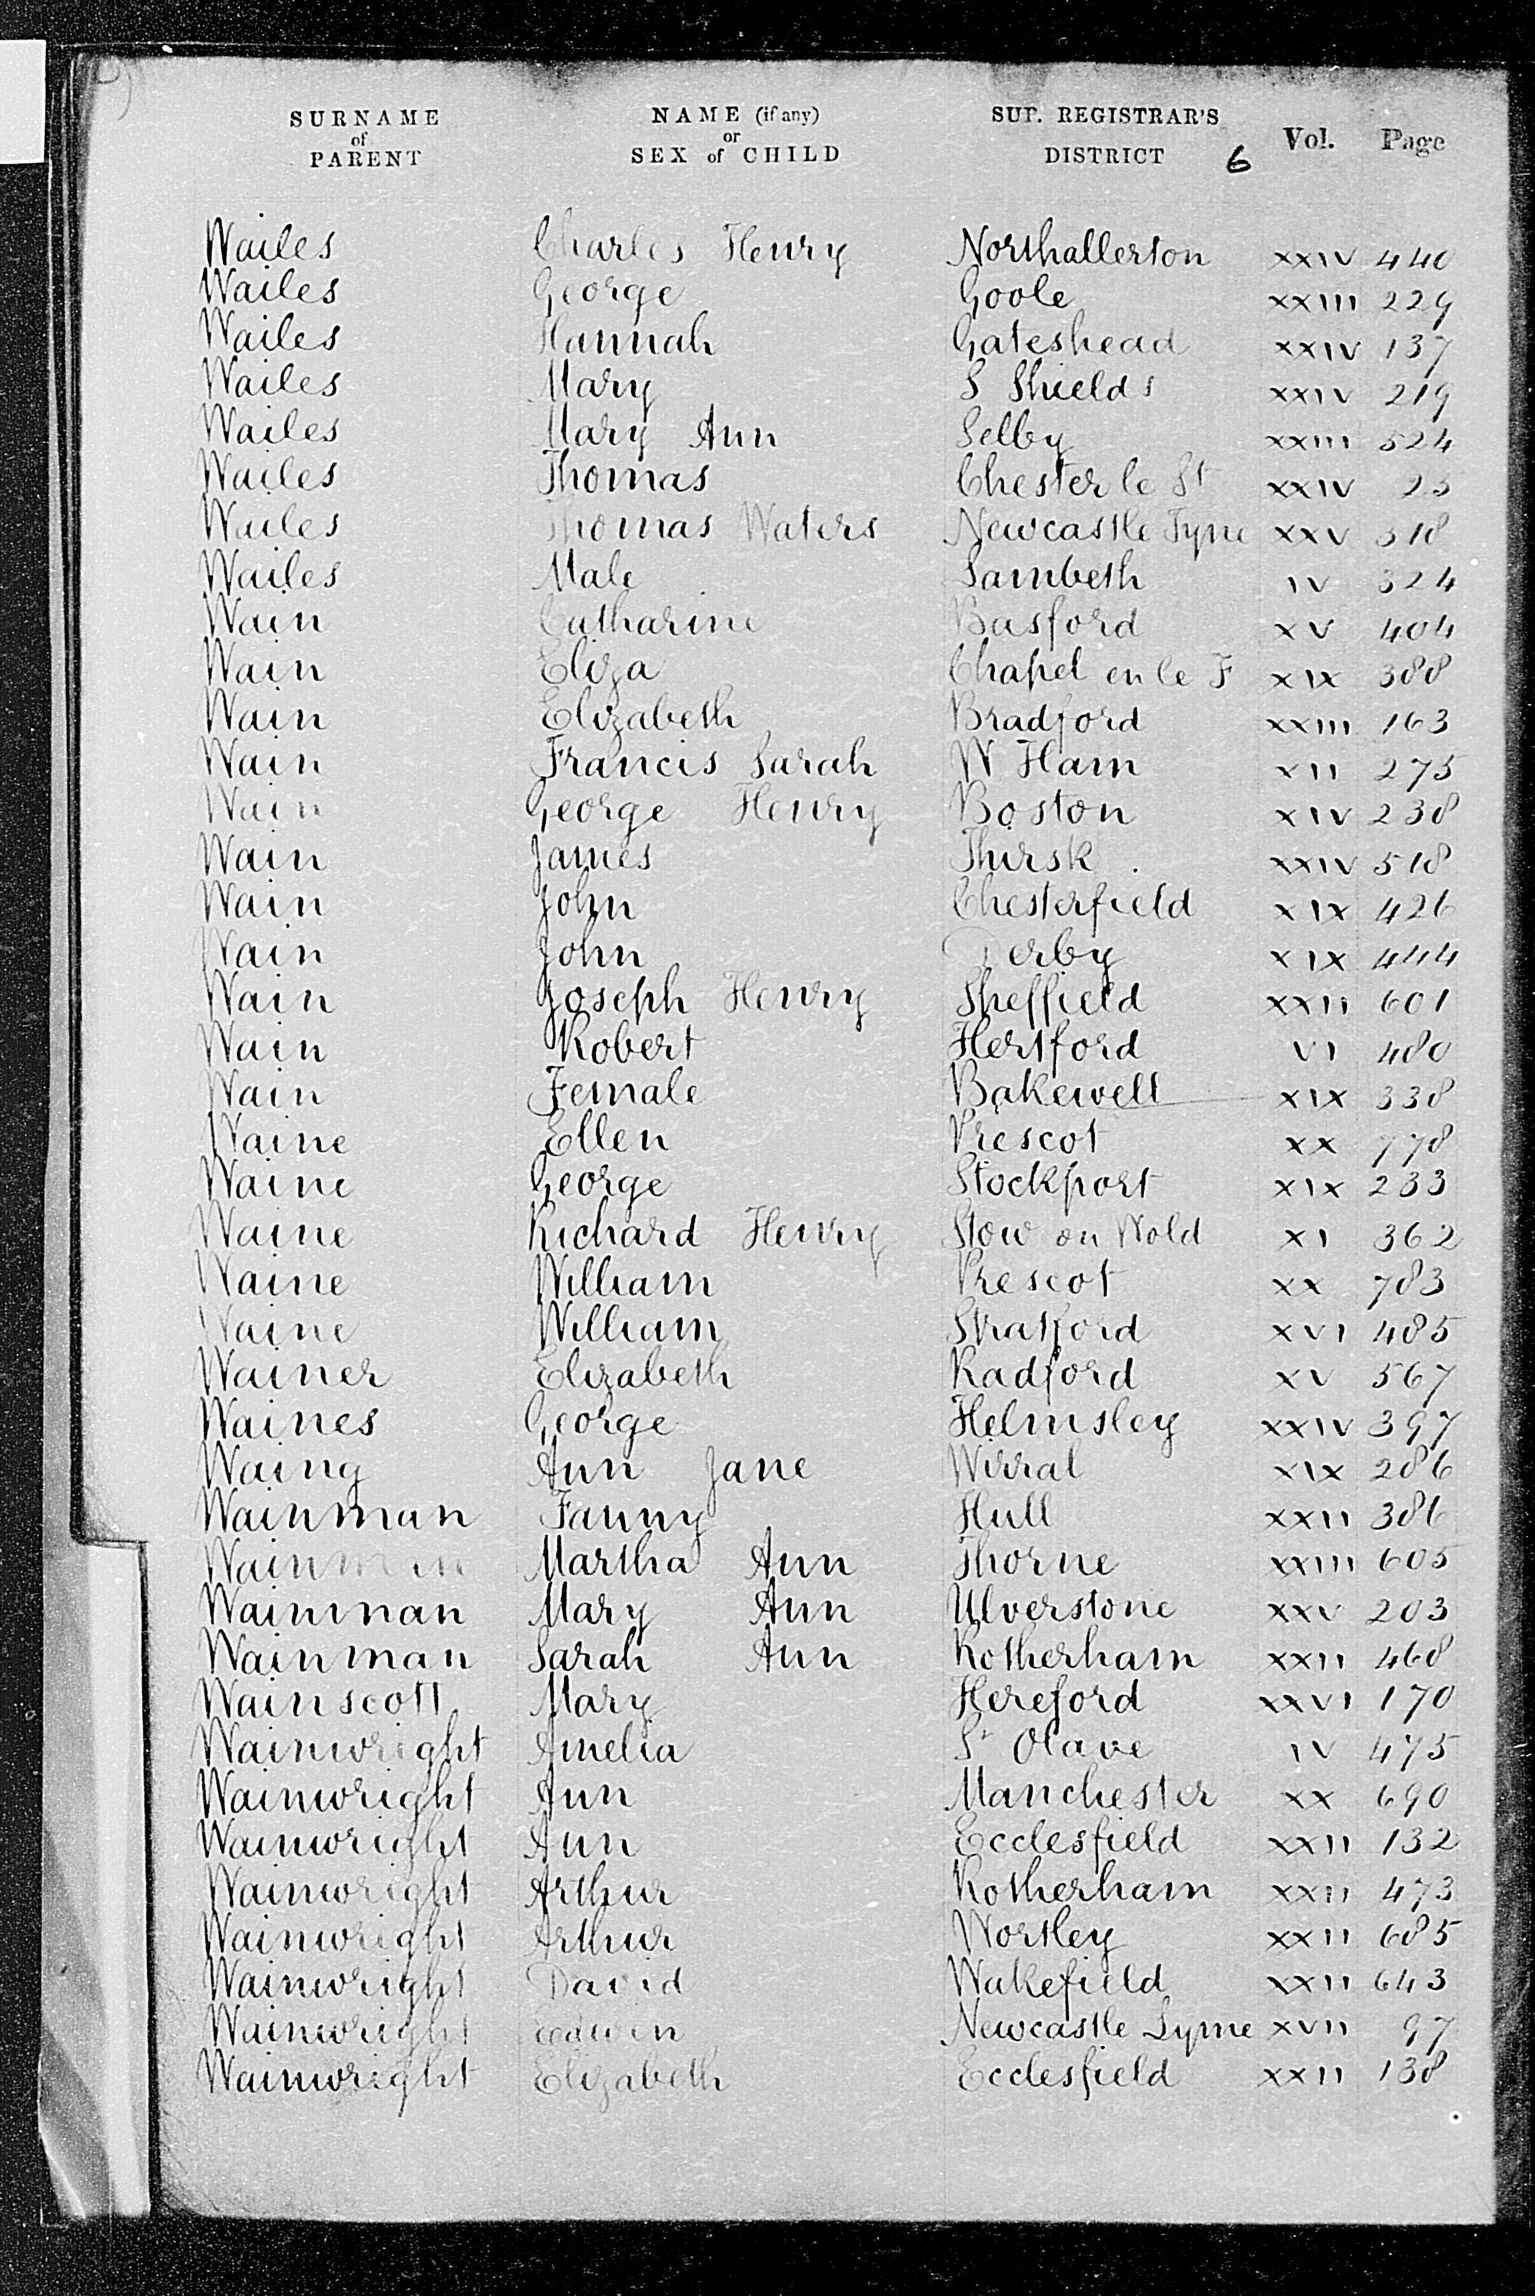 SURNAME of PARENT NAME (if any) or SEX of CHILD SUP. REGISTRAR'S DISTRICT 6 Vol. Page
Wailes Charles Henry Northallerton XXIV 440
Wailes George Goole XXIII 229
Wailes Hannah Gateshead XXIV 137
Wailes Mary S Shields XXIV 219
Wailes Mary Ann Selby XXIII 524
Wailes Thomas Chester le St XXIV
Wailes Thomas Waters Newcastle Tyne XXV 318
Wailes Male Lambeth IV 324
Wain Catharine Basford XV 404
Wain Eliza Chapel en le F XIX 388
Wain Elizabeth Bradford XXIII 163
Wain Francis Sarah W Ham XII 275
Wain George Henry Boston XIV 238
Wain James Thirsk XXIV 518
Wain John Chesterfield XIX 426
Wain John Derby XIX 444
Wain Joseph Henry Sheffield XXII 601
Wain Robert Hertford VI 480
Wain Female Bakewell XIX 338
Waine Ellen Prescot XX 778
Waine George Stockport XIX 233
Waine Richard Henry Stow on Wold XI 362
Waine William Prescot XX 783
Waine William Stratford XVI 485
Wainer Elizabeth Radford XV 567
Waines George Helmsley XXIV 397
Waing Ann Jane Wirral XIX 286
Wainman Fanny Hull XXII 386
Wainman Martha Ann Thorne XXIII 605
Wainman Mary Ann Ulverstone XXV 203
Wainman Sarah Ann Rotherham XXII 468
Wainscott Mary Hereford XXVI 170
Wainwright Amelia St Olave IV 475
Wainwright Ann Manchester XX 690
Wainwright Ann Ecclesfield XXII 132
Wainwright Arthur Rotherham XXII 473
Wainwright Arthur Wortley XXII 685
Wainwright David Wakefield XXII 643
Wainwright Edwin Newcastle Lyme XVII 97
Wainwright Elizabeth Ecclesfield XXII 138